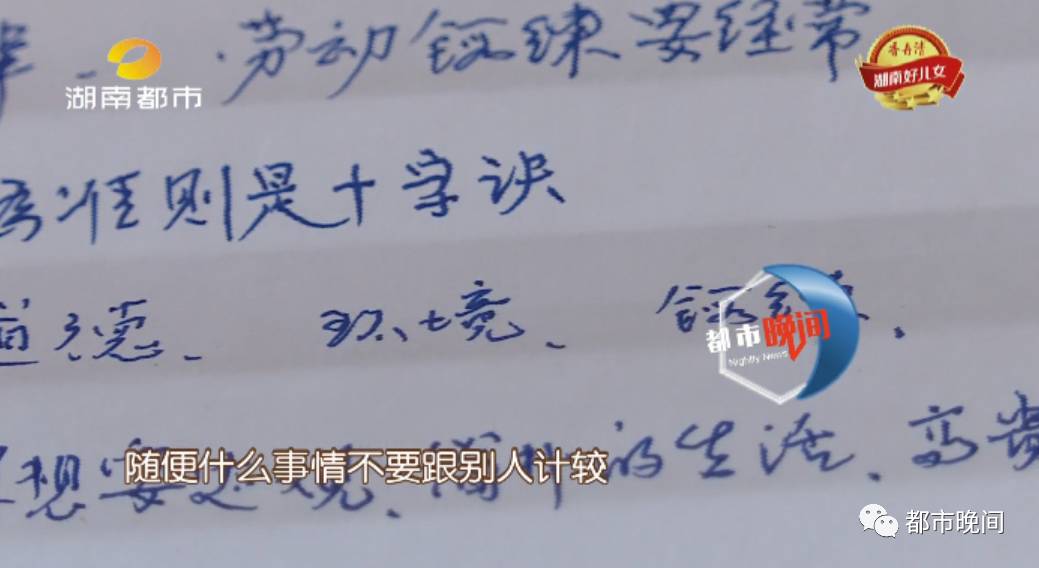 劳动锻练要经常
湖南都市
普丹清
湖南好儿女
准则是十字诀
道德、 环境、 锻练、
都市晚间
Nightly News
想要
的生活、高贵
随便什么事情不要跟别人计较
都市晚间